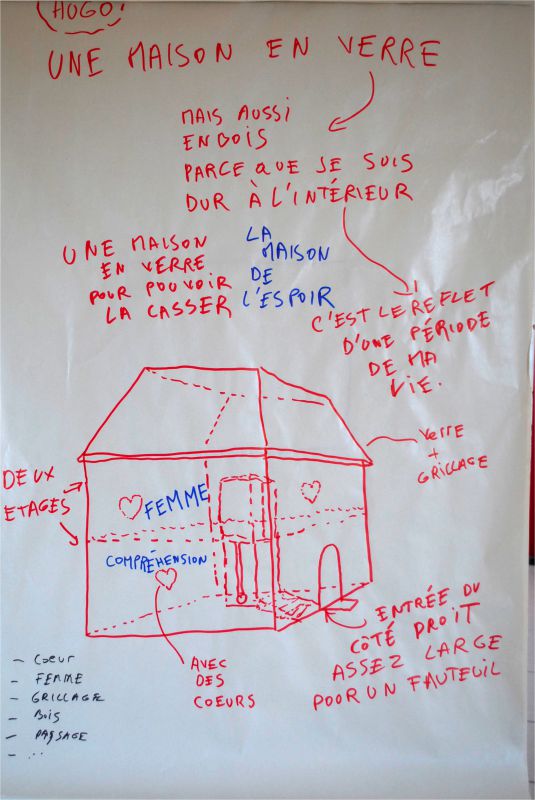 HUGO
UNE MAISON EN VERRE
MAIS AUSSI
EN BOIS
PARCE QUE JE SUIS
DUR À L'INTÉRIEUR
UNE MAISON
EN VERRE
POUR POUVOIR
LA CASSER
LA
MAISON
DE
L'ESPOIR
C'EST LE REFLET
D'UNE PÉRIODE
DE MA
VIE.
VERRE
+
GRILLAGE
DEUX
ETAGES
FEMME
COMPRÉHENSION
AVEC
DES
COEURS
ENTRÉE DU
CÔTÉ DROIT
ASSEZ LARGE
POUR UN FAUTEUIL
- Coeur
- FEMME
- GRILLAGE
- Bois
- PAYSAGE
- ...